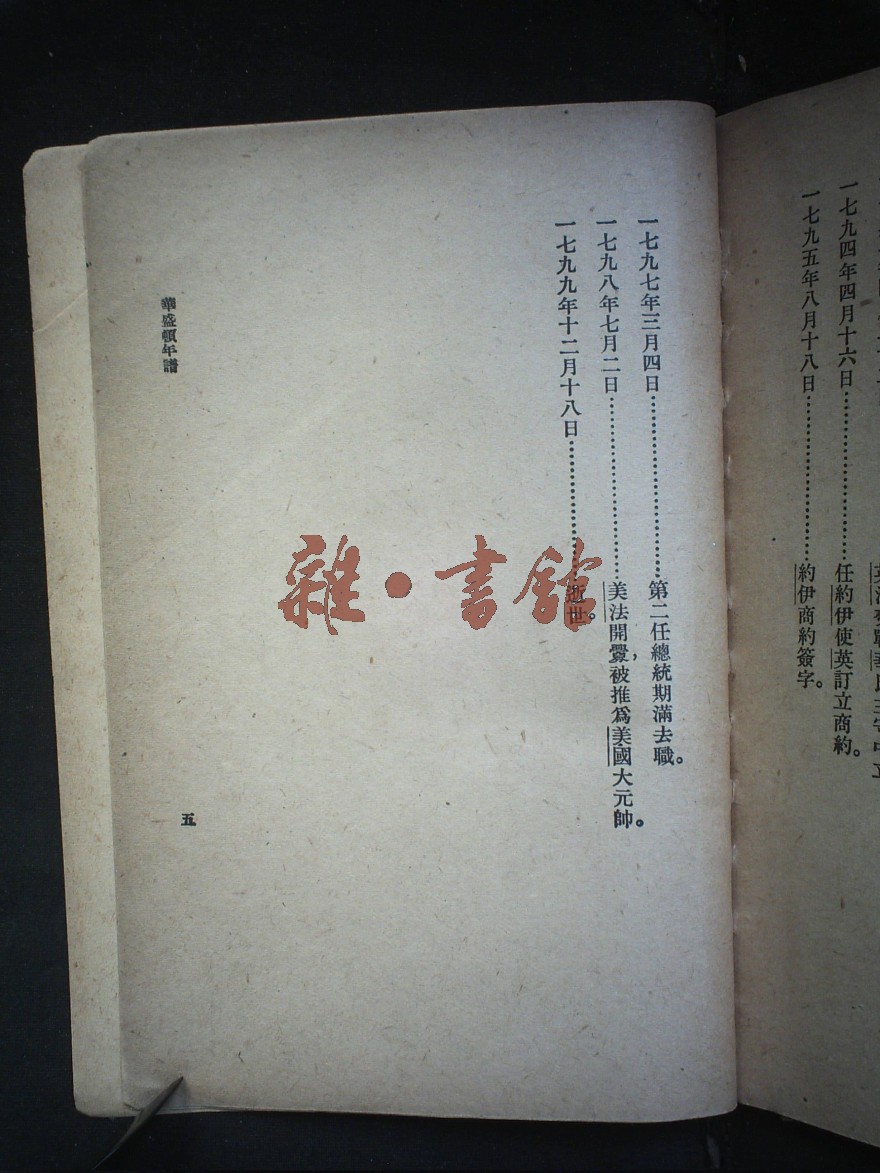 一七九四年四月十六日……………………任約伊使英訂立商約。
一七九五年八月十八日……………………約伊商約簽字。
一七九七年三月四日……………………第二任總統期滿去職。
一七九八年七月二日……………………美法開釁,被推爲美國大元帥。
一七九九年十二月十八日……………………逝世。
華盛頓年譜
五
雜·書館